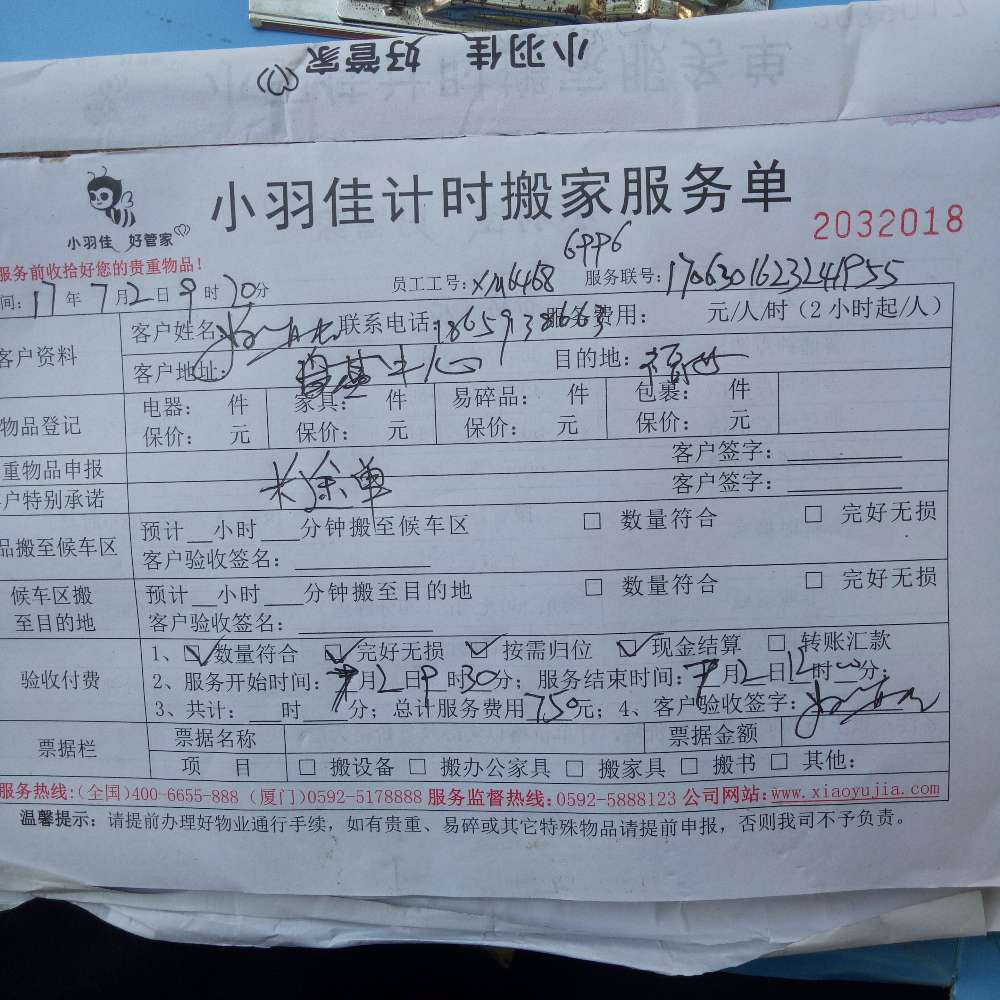 小羽佳 好管家
小羽佳计时搬家服务单
小羽佳 好管家
2032018
服务前收拾好您的贵重物品！
6PP6
间：17年7月2日9时30分 员工工号：XM6468 服务联号：170630162324
客户资料 客户姓名： 联系电话： 服务费用： 元/人/时（2小时起/人）
客户地址： 中心 目的地：
物品登记 电器： 件 家具： 件 易碎品： 件 包裹： 件
保价： 元 保价： 元 保价： 元 保价： 元
重物品申报 客户签字：
长途单
户特别承诺 客户签字：
品搬至候车区 预计__小时___分钟搬至候车区 □ 数量符合 □ 完好无损
客户验收签名：
候车区搬至目的地 预计__小时___分钟搬至目的地 □ 数量符合 □ 完好无损
客户验收签名：
验收付费 1、☑数量符合 ☑完好无损 ☑按需归位 ☑现金结算 □ 转账汇款
2、服务开始时间：7月2日9时30分；服务结束时间：7月2日12时00分；
3、共计：__时___分；总计服务费用750元；4、客户验收签字：
票据栏 票据名称 票据金额
项 目 □ 搬设备 □ 搬办公家具 □ 搬家具 □ 搬书 □ 其他：
服务热线：（全国）400-6655-888（厦门）0592-5178888 服务监督热线：0592-5888123 公司网站：www.xiaoyujia.com
温馨提示：请提前办理好物业通行手续，如有贵重、易碎或其它特殊物品请提前申报，否则我司不予负责。